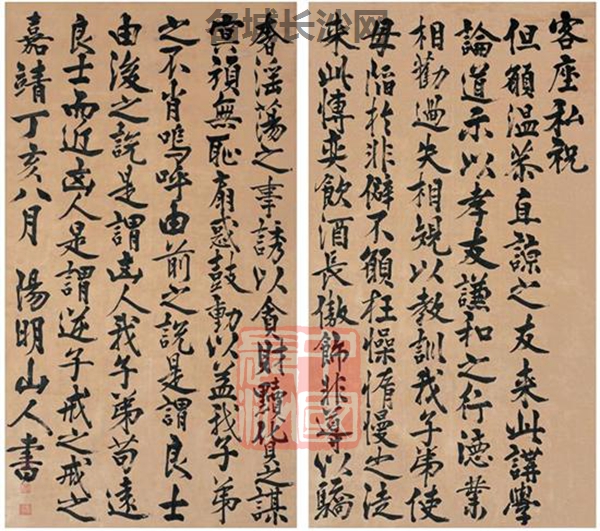 名城长沙网
客座私祝
但願溫恭直諒之友来此講學
論道示以孝友謙和之行德業
相勸過失相規以教訓我子弟使
毋陷於非僻不願狂懆惰慢之徒
来此博奕飲酒長傲飾非導以驕
奢淫蕩之事誘以貪財黷貨之謀
冥頑無恥扇惑鼓動以益我子弟
之不肖嗚呼由前之說是謂良士
由後之說是謂凶人我子弟苟遠
良士而近凶人是謂逆子戒之戒之
嘉靖丁亥八月 陽明山人書